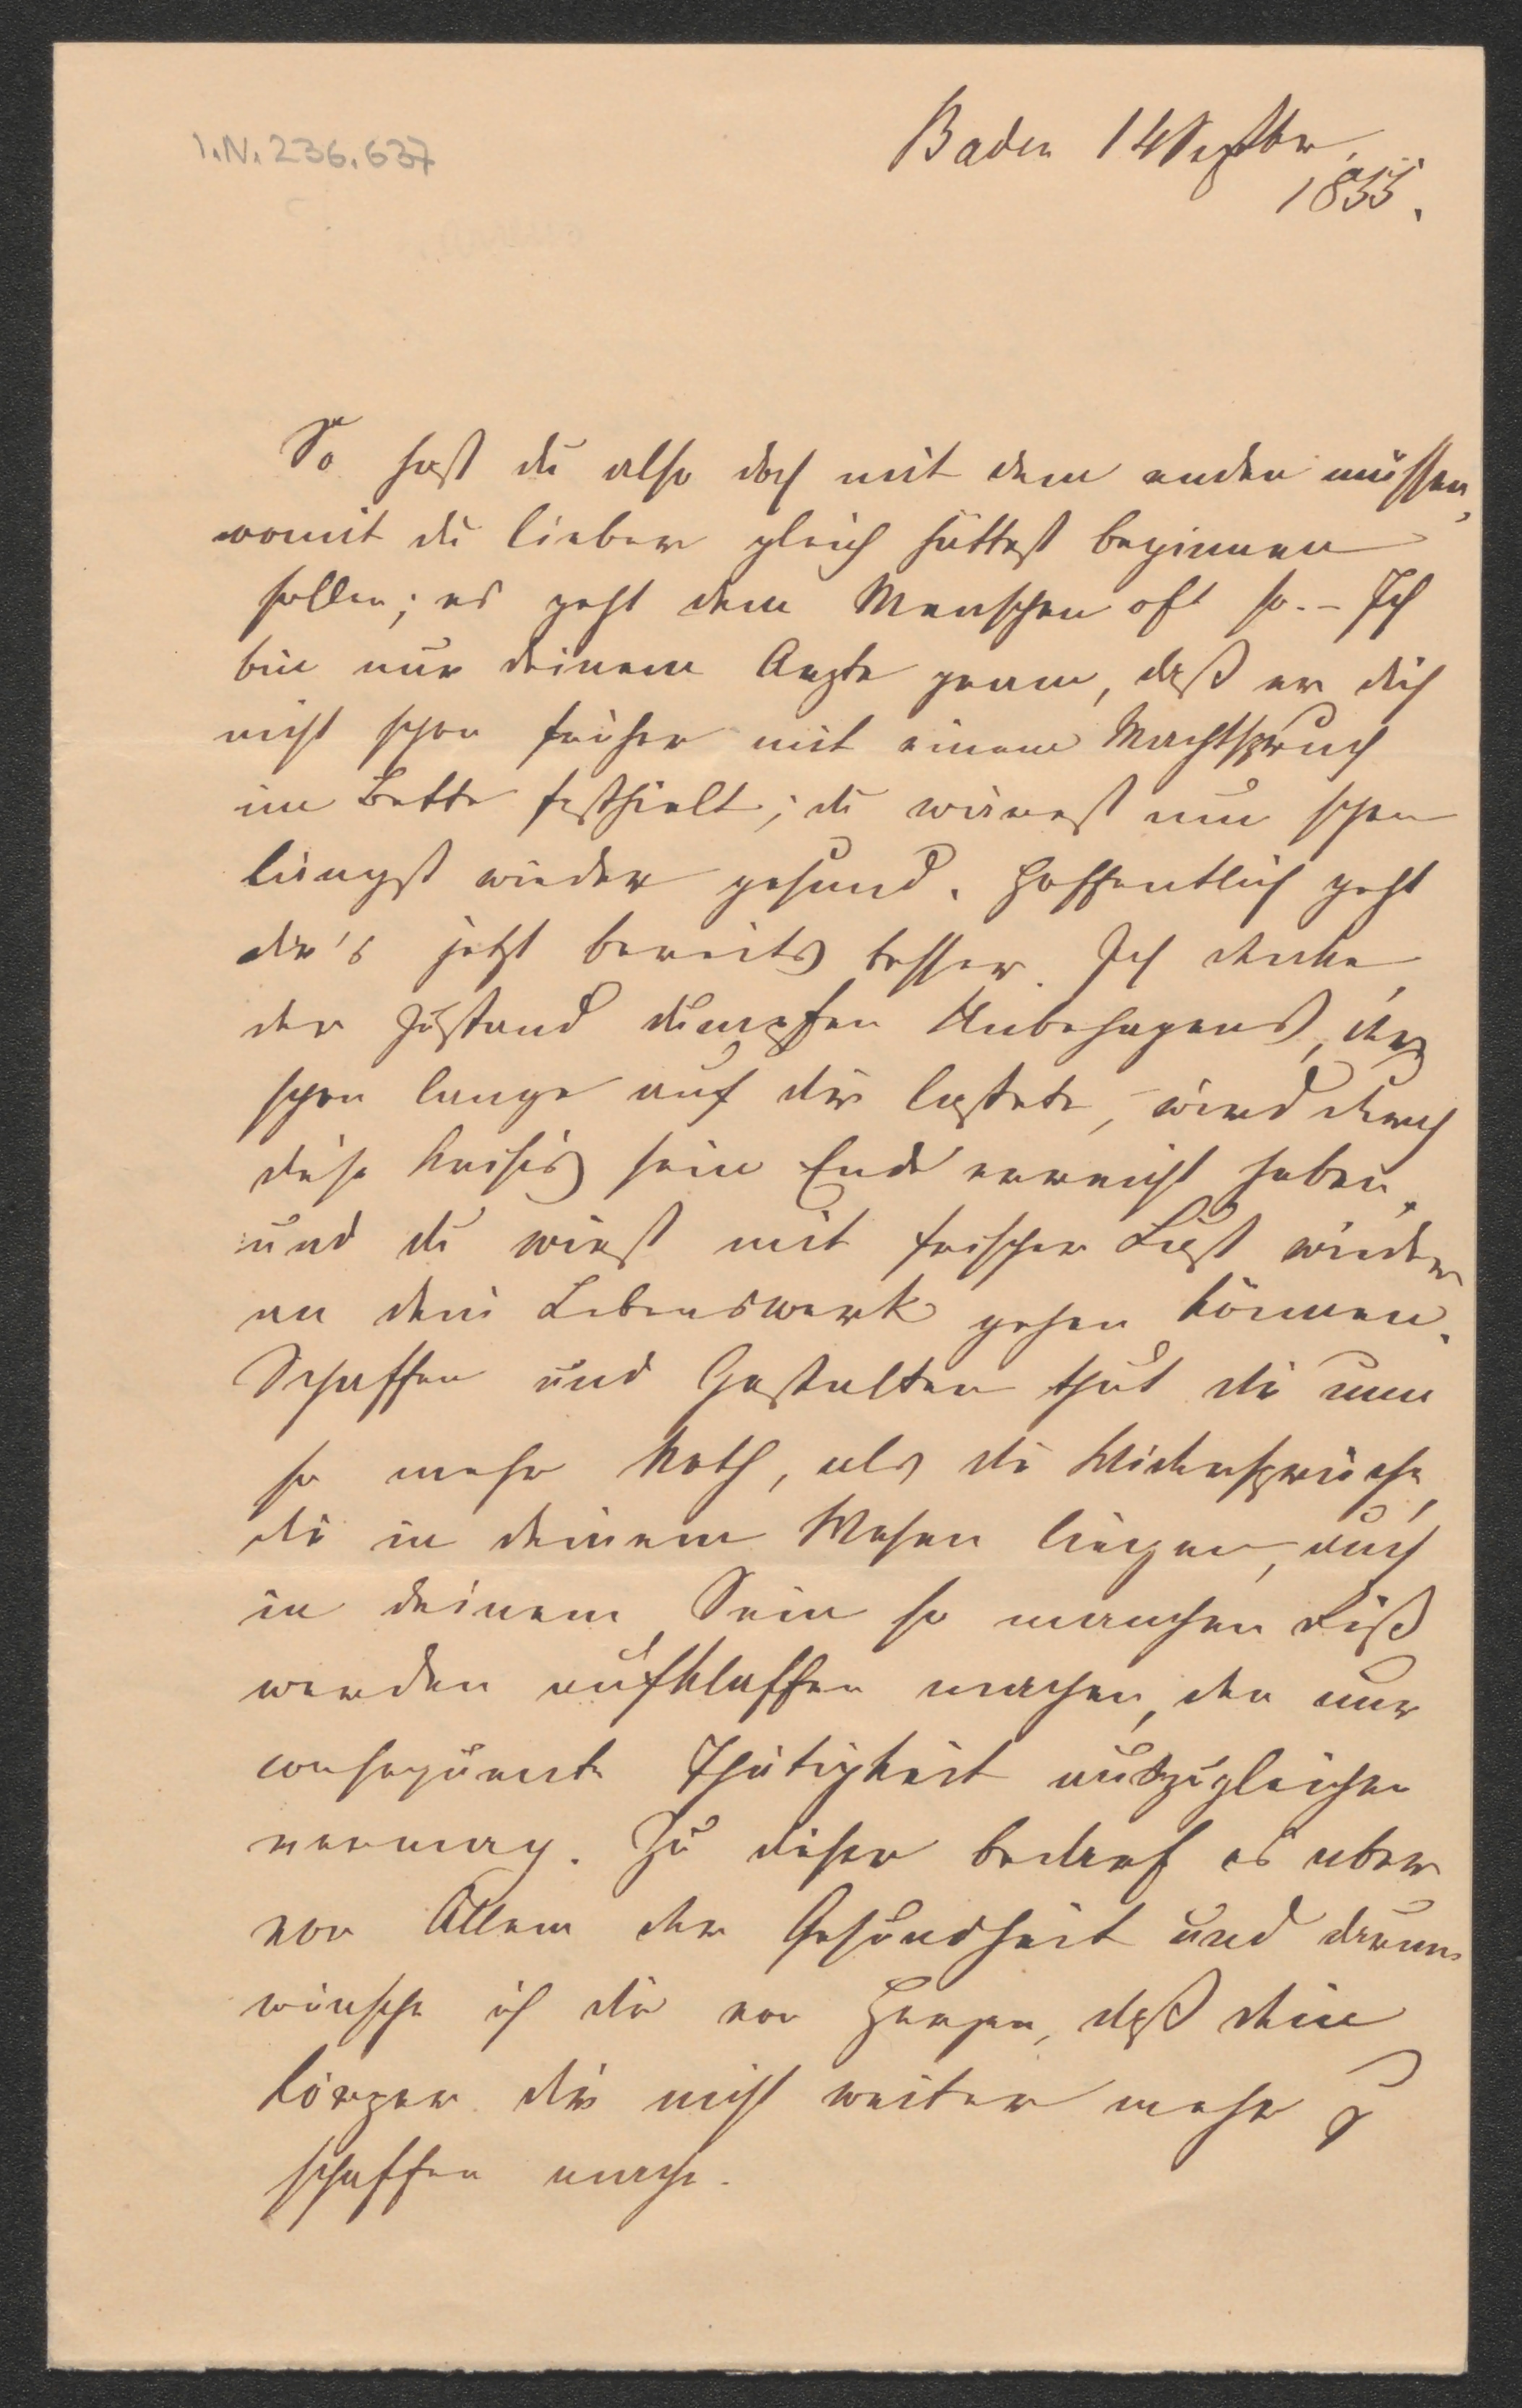 I.N. 236.637
Baden 14 Septbr.
1855.
So hast du also doch mit dem enden müssen,
womit du lieber gleich hättest beginnen
sollen; es geht dem Menschen oft so. – Ich
bin nur deinem Arzte gram, daß er dich
nicht schon früher mit einem Machtspruch
im Bette festhielt; du wärest nun schon
längst wieder gesund. Hoffentlich geht
dir's jetzt bereits besser. Ich denke,
der Zustand dumpfen Unbehagens, der
schon lange auf dir lastete, wird durch
diese Krisis sein Ende erreicht haben,
und du wirst mit frischer Lust wieder
an dein Lebenswerk gehen können.
Schaffen und Gestalten thut dir um
so mehr Noth, als die Widersprüche,
die in deinem Wesen liegen, auch
in deinem Sein so manchen Riß
werden aufklaffen machen, den nur
consequente Thätigkeit auszugleichen
vermag. Zu dieser bedarf es aber
vor Allem der Gesundheit und darum
wünsche ich dir von Herzen, daß dein
Körper dir nicht weiter mehr zu
schaffen mache.